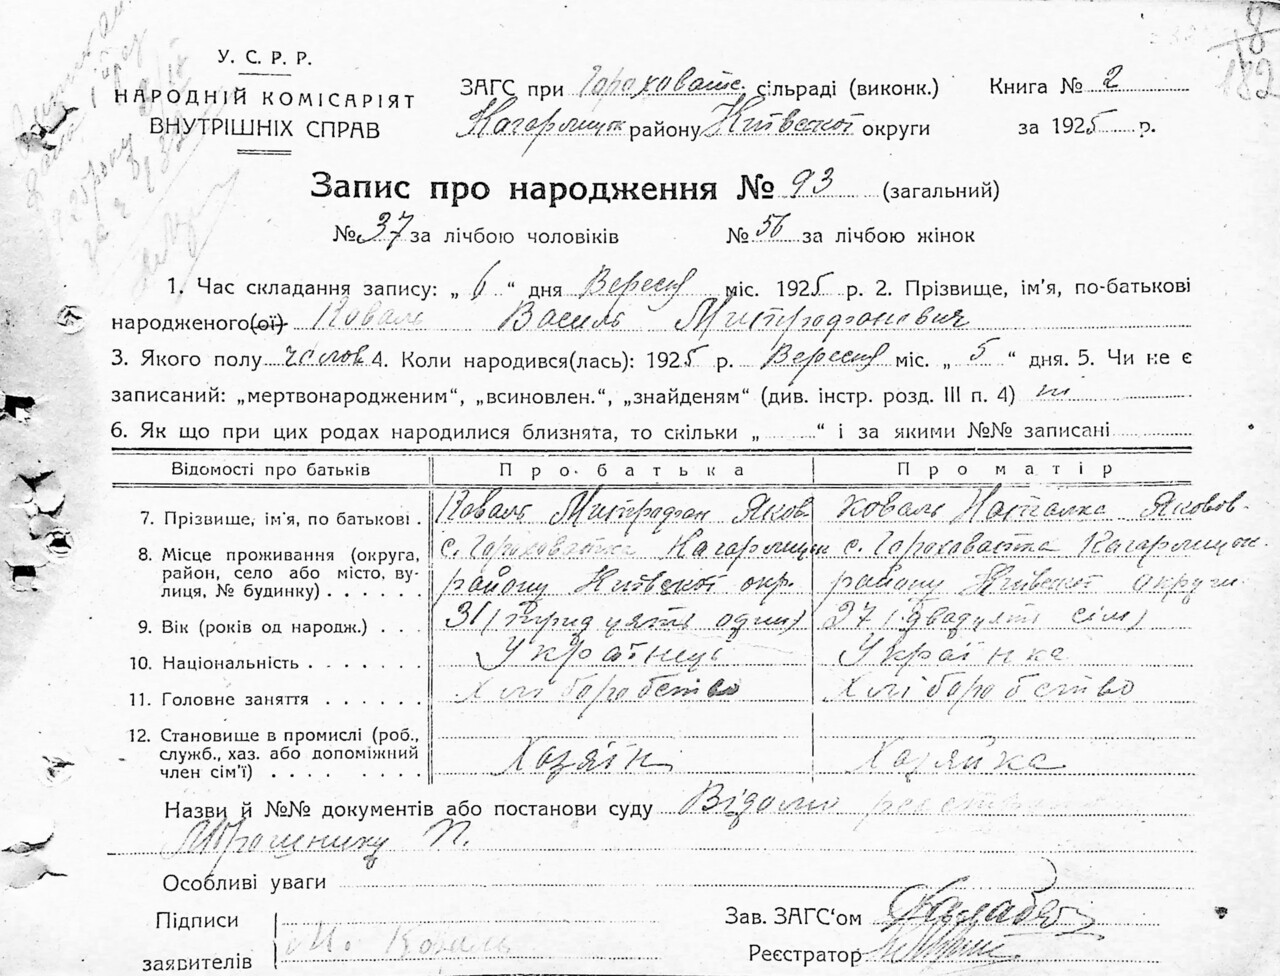 У. С. Р. Р.
НАРОДНІЙ КОМІСАРІЯТ
ВНУТРІШНІХ СПРАВ
ЗАГС при Гороховатс. сільраді (виконк.) Книга № 2
Кагарлицьк району Київської округи за 1925 р.
8
182
Запис про народження № 93 (загальний)
№ 37 за лічбою чоловіків № 56 за лічбою жінок
1. Час складання запису: „ 6 “ дня Вересня міс. 1925 р. 2. Прізвище, ім'я, по-батькові
народженого(ої) Коваль Василь Митрофанович
3. Якого полу челов 4. Коли народився(лась): 1925 р. Вересня міс. „ 5 “ дня. 5. Чи не є
записаний: „мертвонародженим“, „всиновлен.“, „знайденям“ (див. інстр. розд. III п. 4) ні
6. Як що при цих родах народилися близнята, то скільки „ “ і за якими №№ записані
Відомості про батьків Про батька Про матір
7. Прізвище, ім'я, по батькові . Коваль Митрофан Яков Коваль Наталка Яковов-
8. Місце проживання (округа, район, село або місто, вулиця, № будинку) с. Гороховатка Кагарлицьк с. Гороховатка Кагарлицьк.
району Київської окр. району Київської округи
9. Вік (років од народж.) . . . 31 (тридцять один) 27 (двадцять сім)
10. Національність . . . . . . . Українець Українка
11. Головне заняття . . . . . . Хліборобство Хліборобство
12. Становище в промислі (роб., служб., хаз. або допоміжний член сім'ї) . . . . . . . Хазяїн Хазяйка
Назви й №№ документів або постанови суду Відомо
П.
Особливі уваги
Підписи
заявителів М. Коваль
Зав. ЗАГС‘ом
Реєстратор